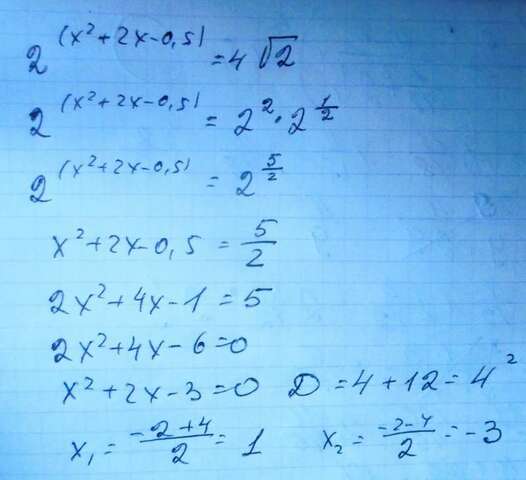 2^(x²+2x-0,5) = 4√2
2^(x²+2x-0,5) = 2² · 2^(1/2)
2^(x²+2x-0,5) = 2^(5/2)
x²+2x-0,5 = 5/2
2x²+4x-1=5
2x²+4x-6=0
x²+2x-3=0 D=4+12=4²
x₁ = (-2+4)/2 = 1 x₂ = (-2-4)/2 = -3